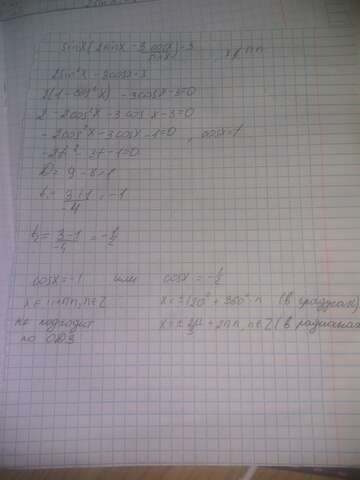 sinx(2sinx - 3 cosx/sinx) = 3
x ≠ πn
2sin²x - 3cosx = 3
2(1 - cos²x) - 3cosx - 3 = 0
2 - 2cos²x - 3cosx - 3 = 0
-2cos²x - 3cosx - 1 = 0, cosx = t
-2t² - 3t - 1 = 0
D = 9 - 8 = 1
t₁ = (3+1)/-4 = -1
t₂ = (3-1)/-4 = -1/2
cosx = -1 или cosx = -1/2
x = π + 2πn, n∈Z x = ±120° + 360°·n (в градусах)
не подходит x = ± 2π/3 + 2πn, n∈Z (в радианах
по ОДЗ